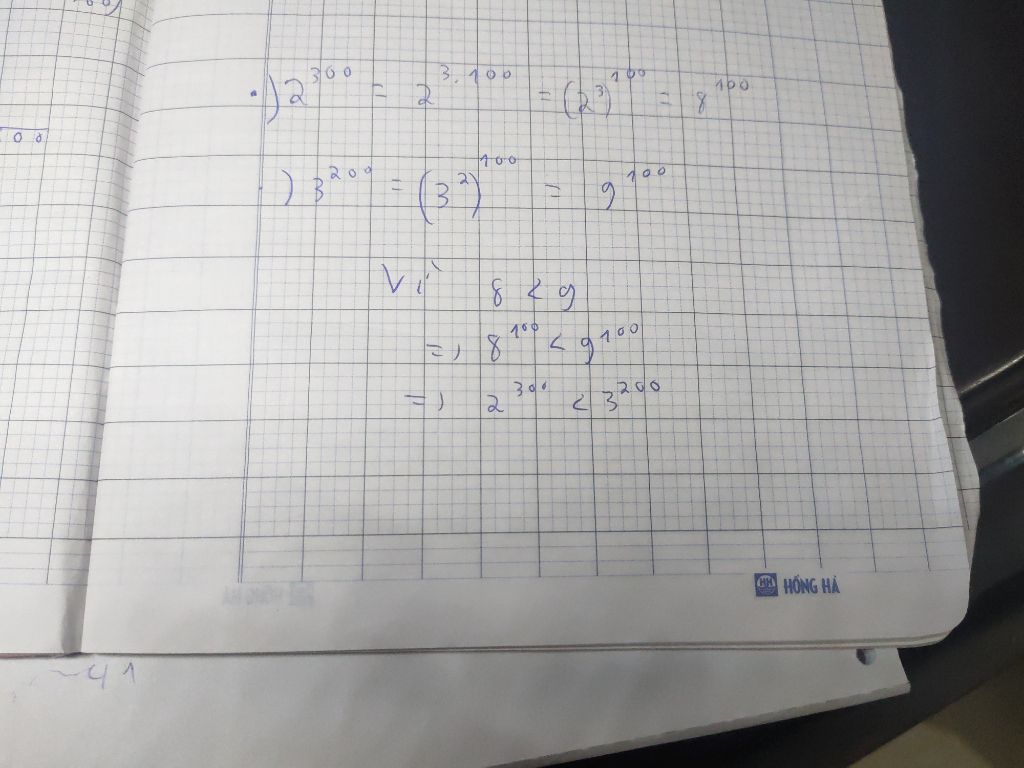 .) 2^300 = 2^3.100 = (2^3)^100 = 8^100
.) 3^200 = (3^2)^100 = 9^100
Vì 8 < 9
=) 8^100 < 9^100
=) 2^300 < 3^200
HH HỒNG HÀ